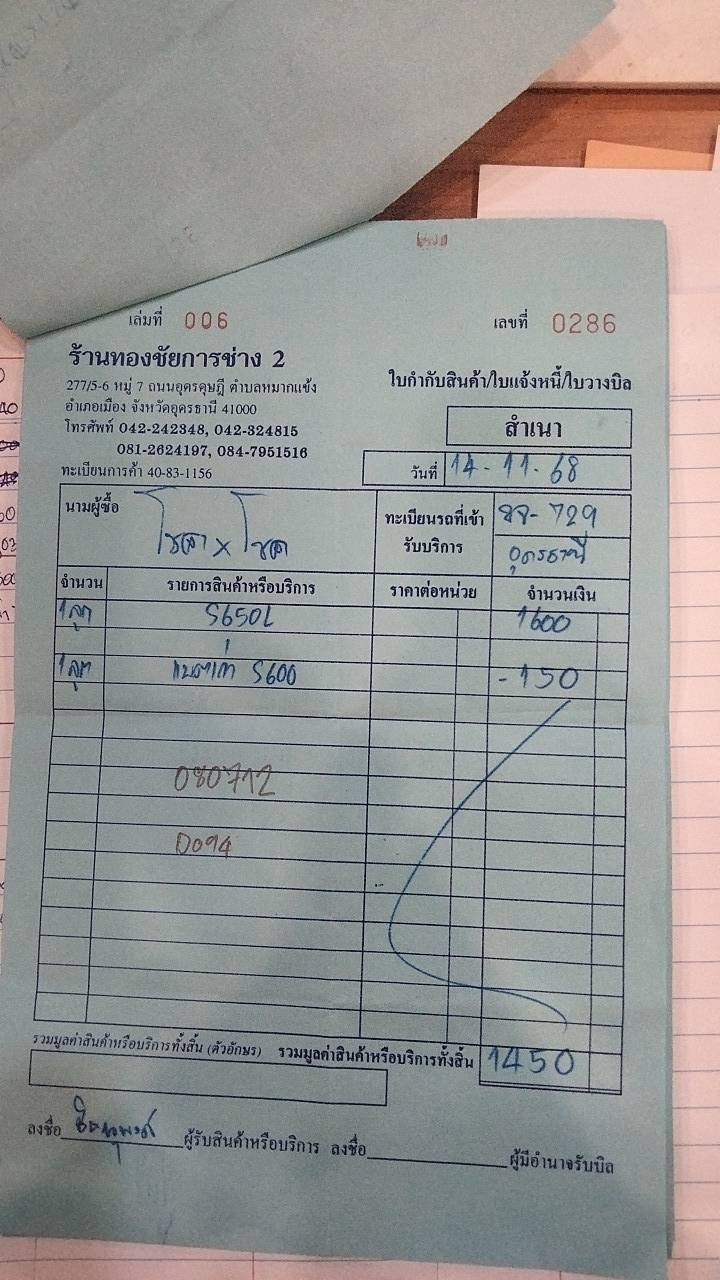 เล่มที่ 006
เลขที่ 0286
ร้านทองชัยการช่าง 2
277/5-6 หมู่ 7 ถนนอุดรดุษฎี ตำบลหมากแข้ง
อำเภอเมือง จังหวัดอุดรธานี 41000
โทรศัพท์ 042-242348, 042-324815
081-2624197, 084-7951516
ทะเบียนการค้า 40-83-1156
ใบกำกับสินค้า/ใบแจ้งหนี้/ใบวางบิล
สำเนา
วันที่ 14-11-68
นามผู้ซื้อ
ทะเบียนรถที่เข้า
รับบริการ
729
อุดรธานี
จำนวน รายการสินค้าหรือบริการ ราคาต่อหน่วย จำนวนเงิน
1 ลูก S650L 1600
1 ลูก แบตเก่า S600 -150
080712
D094
รวมมูลค่าสินค้าหรือบริการทั้งสิ้น (ตัวอักษร) รวมมูลค่าสินค้าหรือบริการทั้งสิ้น 1450
ลงชื่อ ผู้รับสินค้าหรือบริการ ลงชื่อ ผู้มีอำนาจรับบิล